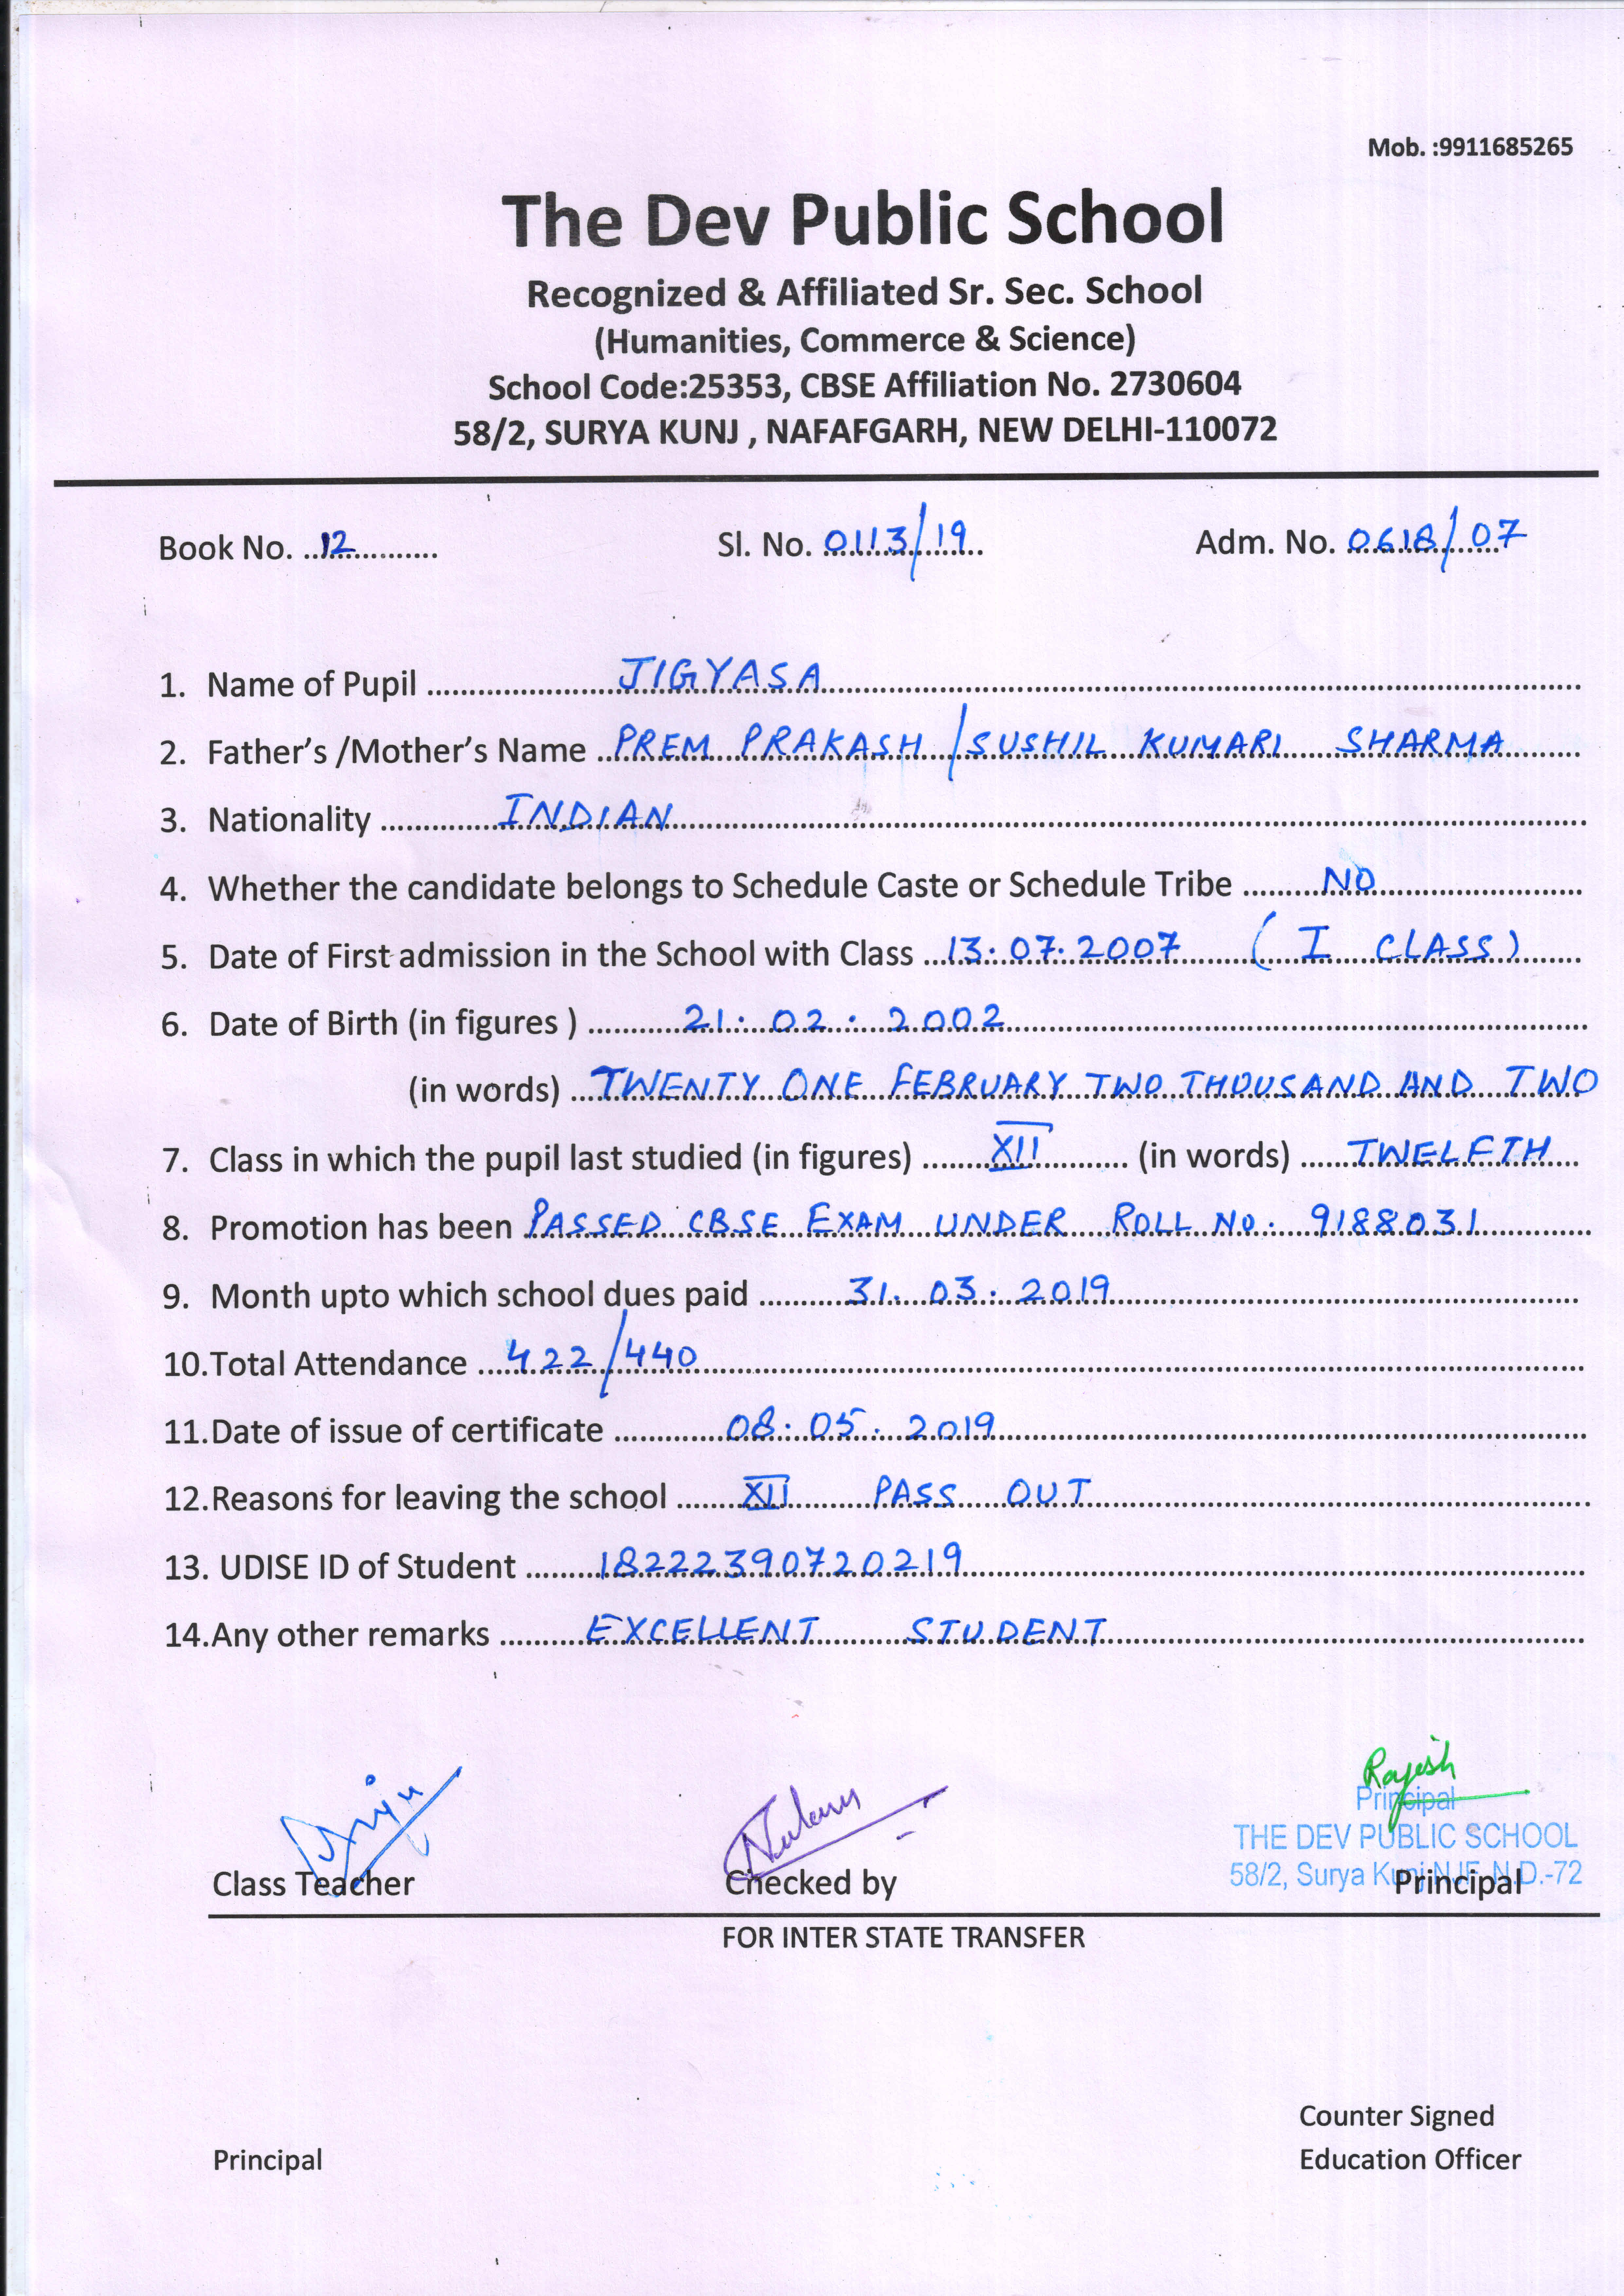 Mob. :9911685265
The Dev Public School
Recognized & Affiliated Sr. Sec. School
(Humanities, Commerce & Science)
School Code:25353, CBSE Affiliation No. 2730604
58/2, SURYA KUNJ , NAFAFGARH, NEW DELHI-110072
Book No. 12 Sl. No. 0113/19 Adm. No. 0618/07
1. Name of Pupil JIGYASA
2. Father's /Mother's Name PREM PRAKASH /SUSHIL KUMARI SHARMA
3. Nationality INDIAN
4. Whether the candidate belongs to Schedule Caste or Schedule Tribe NO
5. Date of First admission in the School with Class 13.07.2007 (I CLASS)
6. Date of Birth (in figures ) 21.02.2002
(in words) TWENTY ONE FEBRUARY TWO THOUSAND AND TWO
7. Class in which the pupil last studied (in figures) XII (in words) TWELFTH
8. Promotion has been PASSED CBSE EXAM UNDER ROLL NO. 9188031
9. Month upto which school dues paid 31.03.2019
10.Total Attendance 422/440
11.Date of issue of certificate 08.05.2019
12.Reasons for leaving the school XII PASS OUT
13. UDISE ID of Student 18222390720219
14.Any other remarks EXCELLENT STUDENT
Rajesh
Principal
THE DEV PUBLIC SCHOOL
58/2, Surya Kunj NJF N.D.-72
Class Teacher Checked by Principal
FOR INTER STATE TRANSFER
Counter Signed
Principal Education Officer